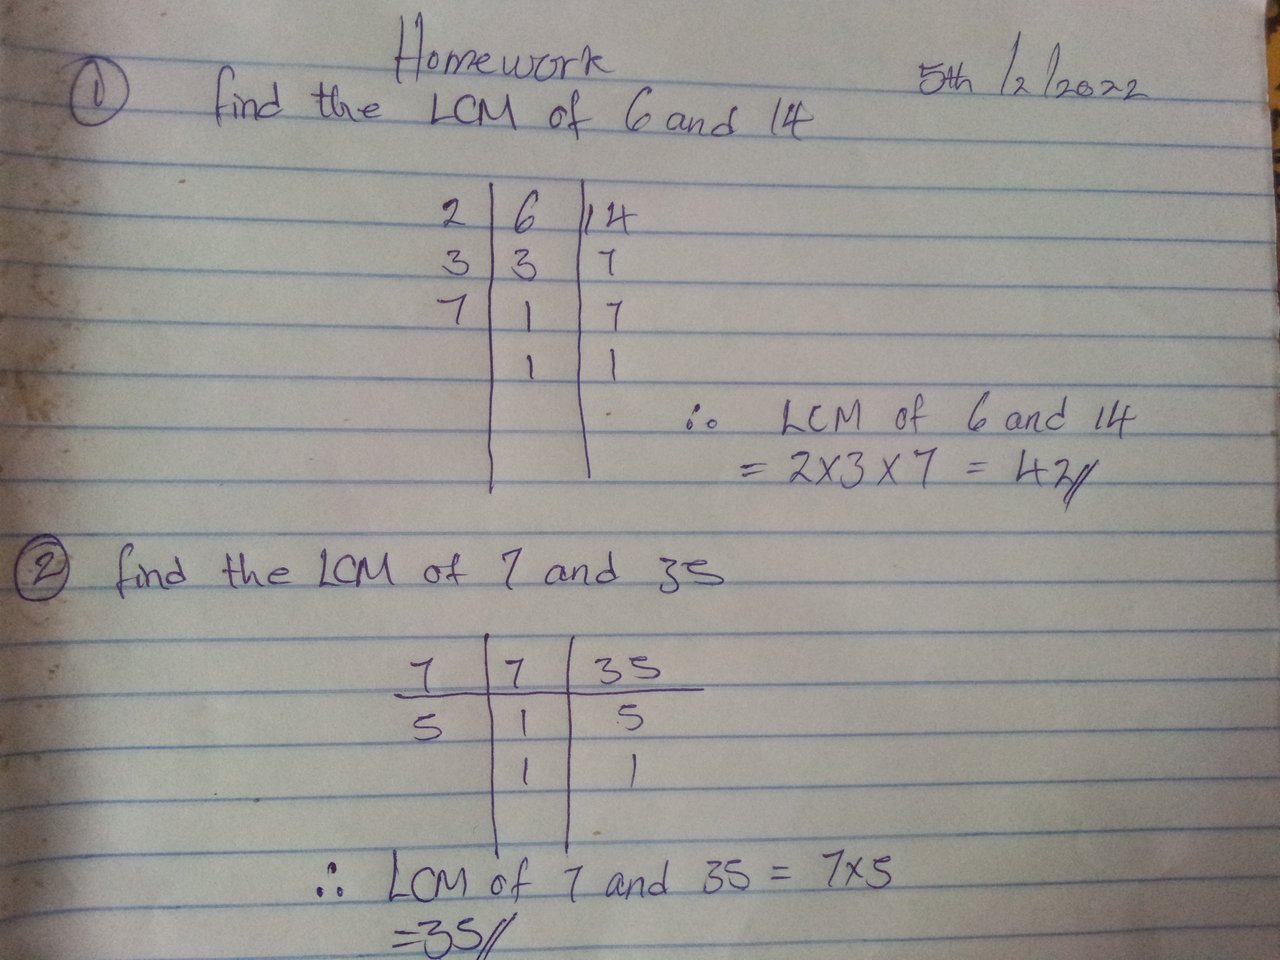 Homework
5th /2/2022
① find the LCM of 6 and 14
2 | 6 | 14
3 | 3 | 7
7 | 1 | 7
| 1 | 1
∴ LCM of 6 and 14
= 2×3×7 = 42//
② find the LCM of 7 and 35
7 | 7 | 35
5 | 1 | 5
| 1 | 1
∴ LCM of 7 and 35 = 7×5
=35//